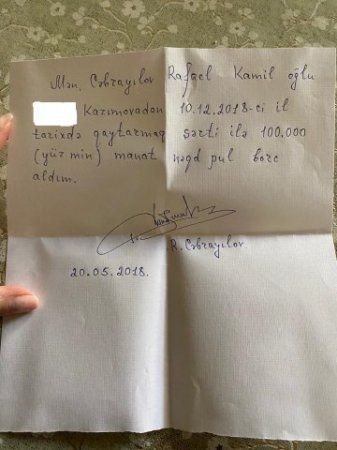 Mən, Cəbrayılov Rafael Kamil oğlu
Kərimovadan 10.12.2018-ci il
tarixdə qaytarmaq şərti ilə 100.000
(yüz min) manat nəğd pul borc
aldım.
R. Cəbrayılov
20.05.2018.